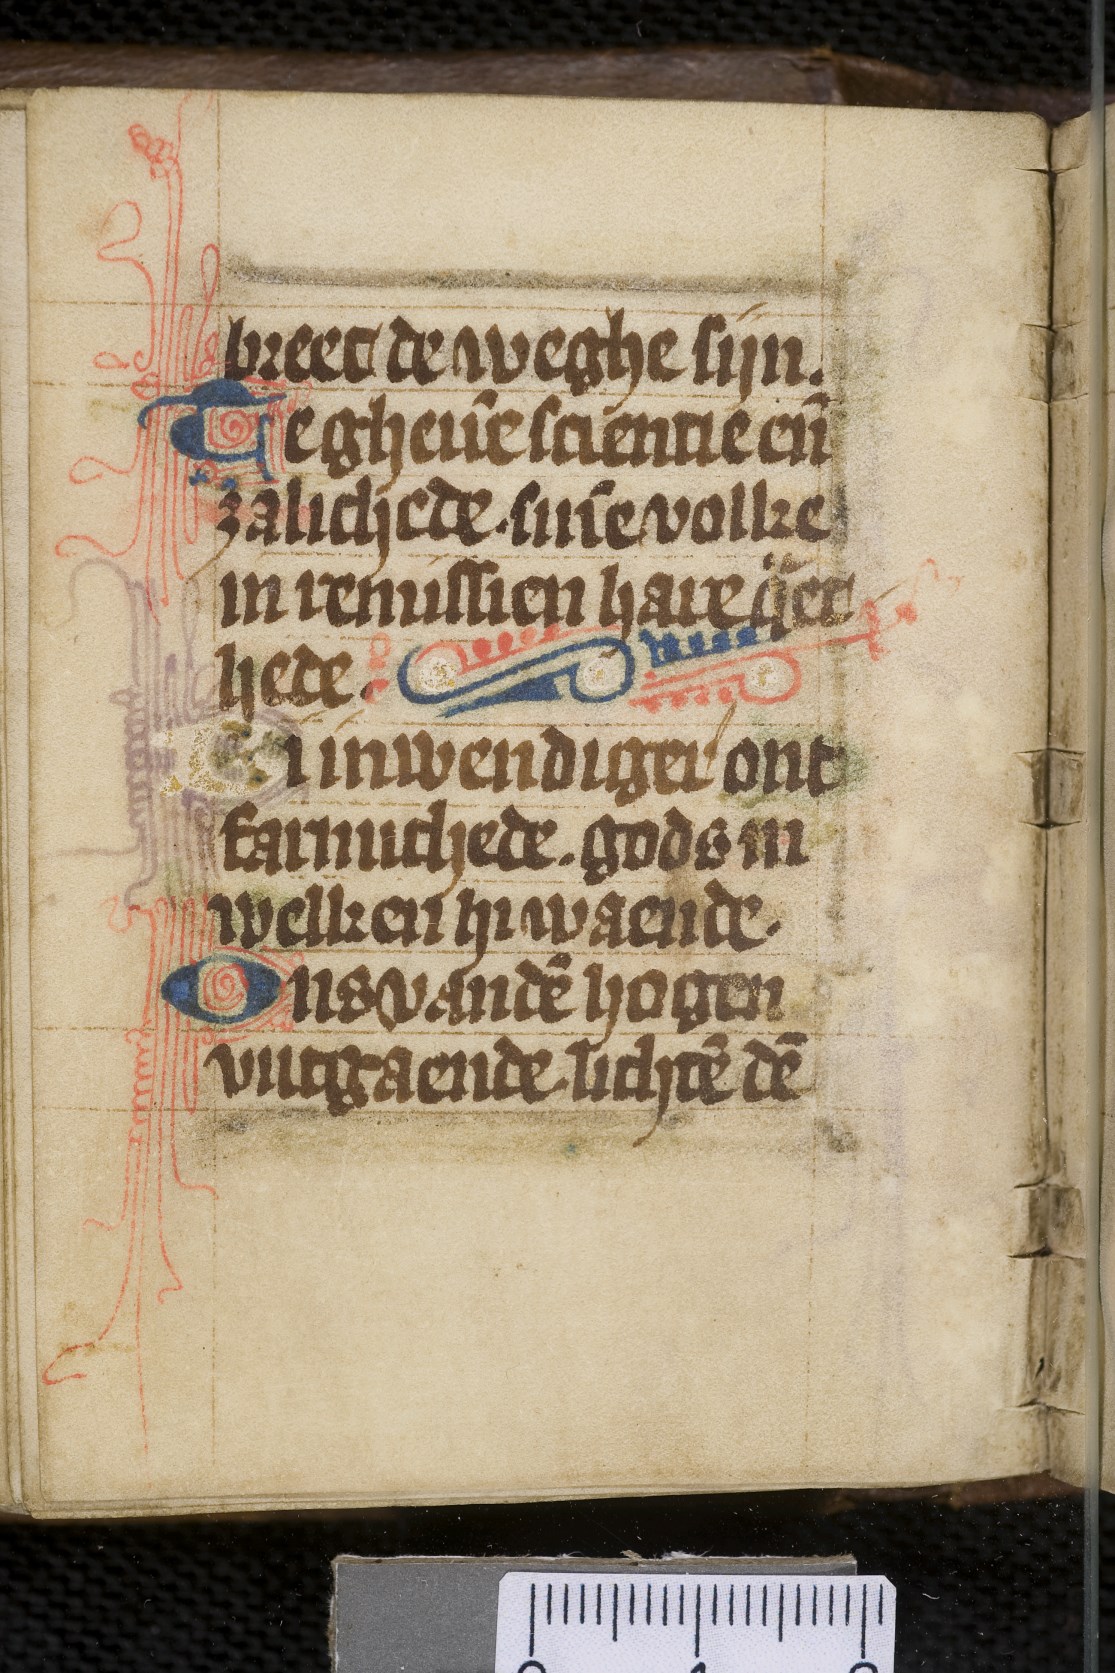 breet de weghe sijn.
Te gheuē̄e scientie eñ
zalichede. sinē̄e volke
in remissien hare q̈et
hede.
i inwendiger ont
farmichede. gods in
welken hi waende.
Ons vandē hogen
vutgaende. lichtē dē
0 1 2